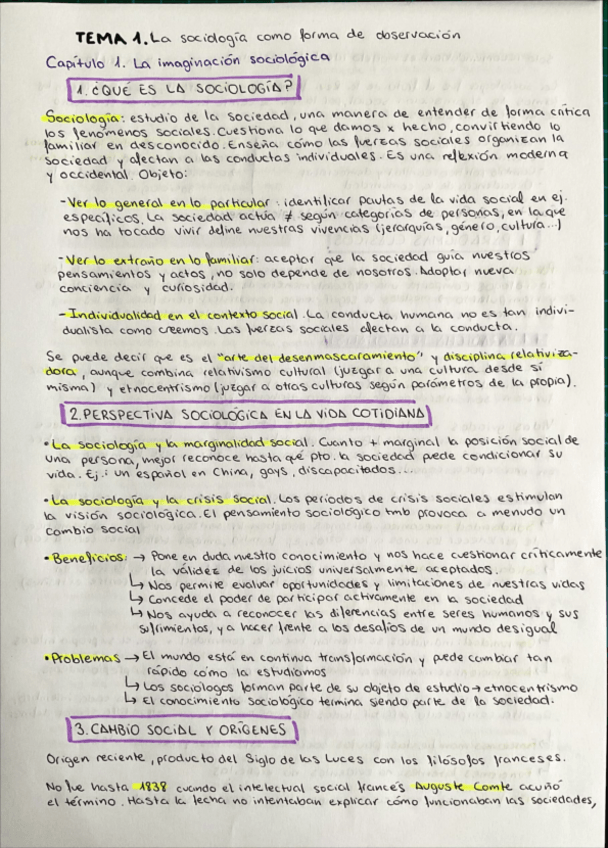 TEMA 1. La sociología como forma de observación
Capítulo 1. La imaginación sociológica
1. ¿QUÉ ES LA SOCIOLOGÍA?
Sociología: estudio de la sociedad, una manera de entender de forma crítica
los fenómenos sociales. Cuestiona lo que damos x hecho, convirtiendo lo
familiar en desconocido. Enseña cómo las fuerzas sociales organizan la
sociedad y afectan a las conductas individuales. Es una reflexión moderna
y occidental. Objeto:
- Ver lo general en lo particular: identificar pautas de la vida social en ej.
específicos. La sociedad actúa ≠ según categorías de personas, en la que
nos ha tocado vivir define nuestras vivencias (jerarquías, género, cultura...)
- Ver lo extraño en lo familiar: aceptar que la sociedad guía nuestros
pensamientos y actos, no solo depende de nosotros. Adoptar nueva
conciencia y curiosidad.
- Individualidad en el contexto social. La conducta humana no es tan indivi-
dualista como creemos. Las fuerzas sociales afectan a la conducta.
Se puede decir que es el "arte del desenmascaramiento" y disciplina relativiza-
dora, aunque combina relativismo cultural (juzgar a una cultura desde sí
misma) y etnocentrismo (juzgar a otras culturas según parámetros de la propia).
2. PERSPECTIVA SOCIOLÓGICA EN LA VIDA COTIDIANA
• La sociología y la marginalidad social. Cuanto + marginal la posición social de
una persona, mejor reconoce hasta qué pto. la sociedad pede condicionar su
vida. Ej.: un español en China, gays, discapacitados...
• La sociología y la crisis social. Los períodos de crisis sociales estimulan
la visión sociológica. El pensamiento sociológico tmb provoca a menudo un
cambio social
• Beneficios: → Pone en duda nuestro conocimiento y nos hace cuestionar críticamente
la válidez de los juicios universalmente aceptados.
↳ Nos permite evaluar oportunidades y limitaciones de nuestras vidas
↳ Concede el poder de participar activamente en la sociedad
↳ Nos ayuda a reconocer las diferencias entre seres humanos y sus
sufrimientos, y a hacer frente a los desafíos de un mundo desigual
• Problemas → El mundo está en continua transformación y puede cambiar tan
rápido cómo la estudiamos
↳ Los sociólogos forman parte de su objeto de estudio → etnocentrismo
↳ El conocimiento sociológico termina siendo parte de la sociedad.
3. CAMBIO SOCIAL Y ORÍGENES
Origen reciente, producto del Siglo de las Luces con los filósofos franceses.
No fue hasta 1838 cuando el intelectual social francés Auguste Comte acuñó
el término. Hasta la fecha no intentaban explicar cómo funcionaban las sociedades,